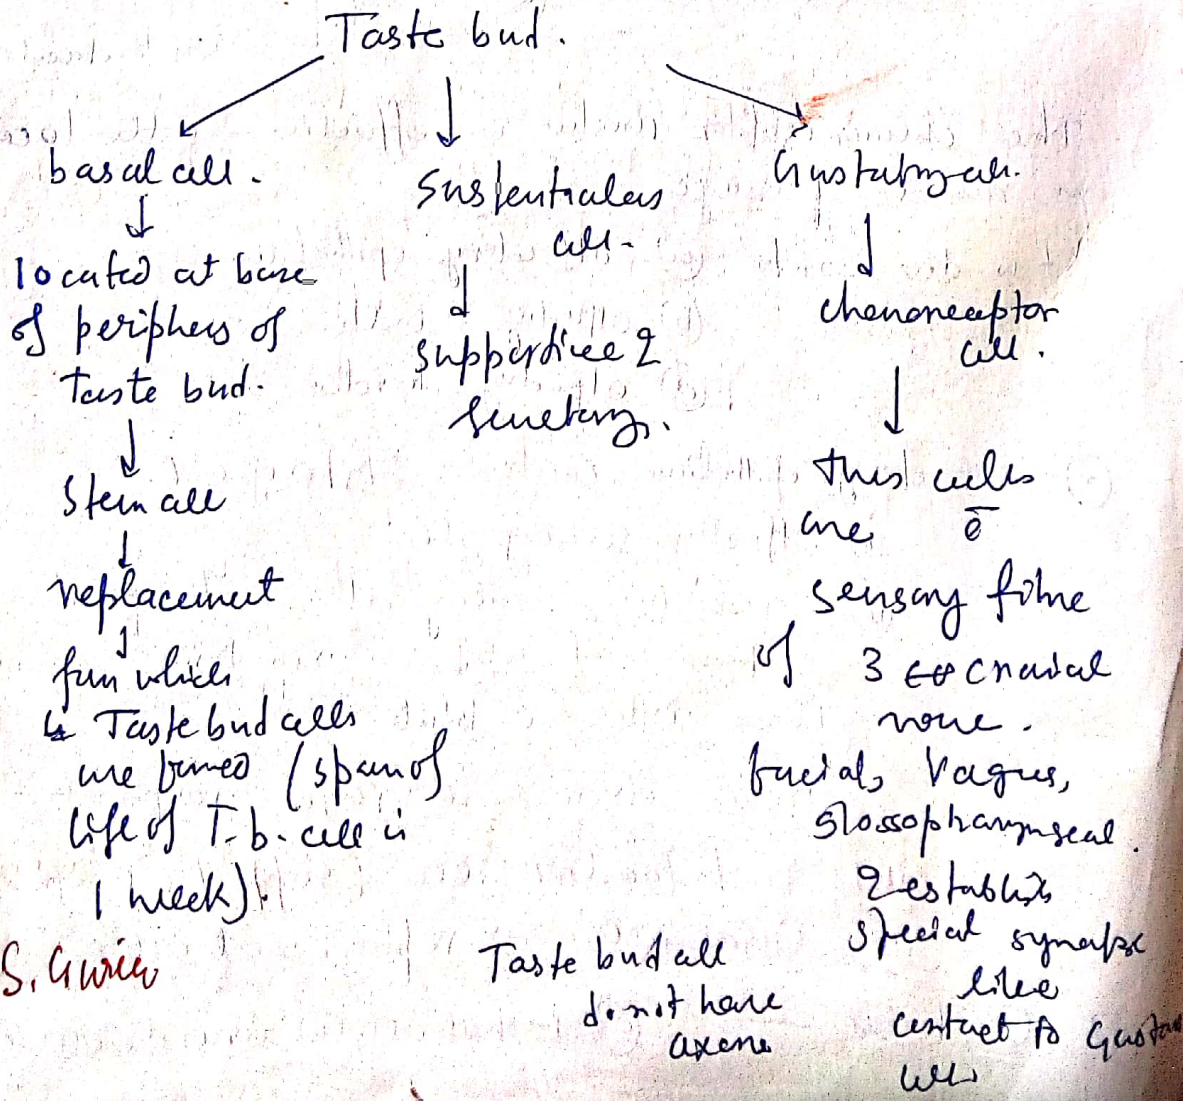 Taste bud.
basal cell.
↓
located at base
of periphery of
Taste bud.
↓
Stem cell
↓
replacement
↓
from which
↳ Taste bud cells
are formed (span of
life of T.b. cell is
1 week).
Sustentacular
cell.
↓
supportive &
secretory.
Gustatory cell.
↓
chemoreceptor
cell.
↓
this cells
are c̄
sensory fibre
of 3 cranial
nerve.
facial, Vagus,
glossopharyngeal.
& establish
special synapse
like
contact to Gustatory
cell
Taste bud cell
do not have
axone